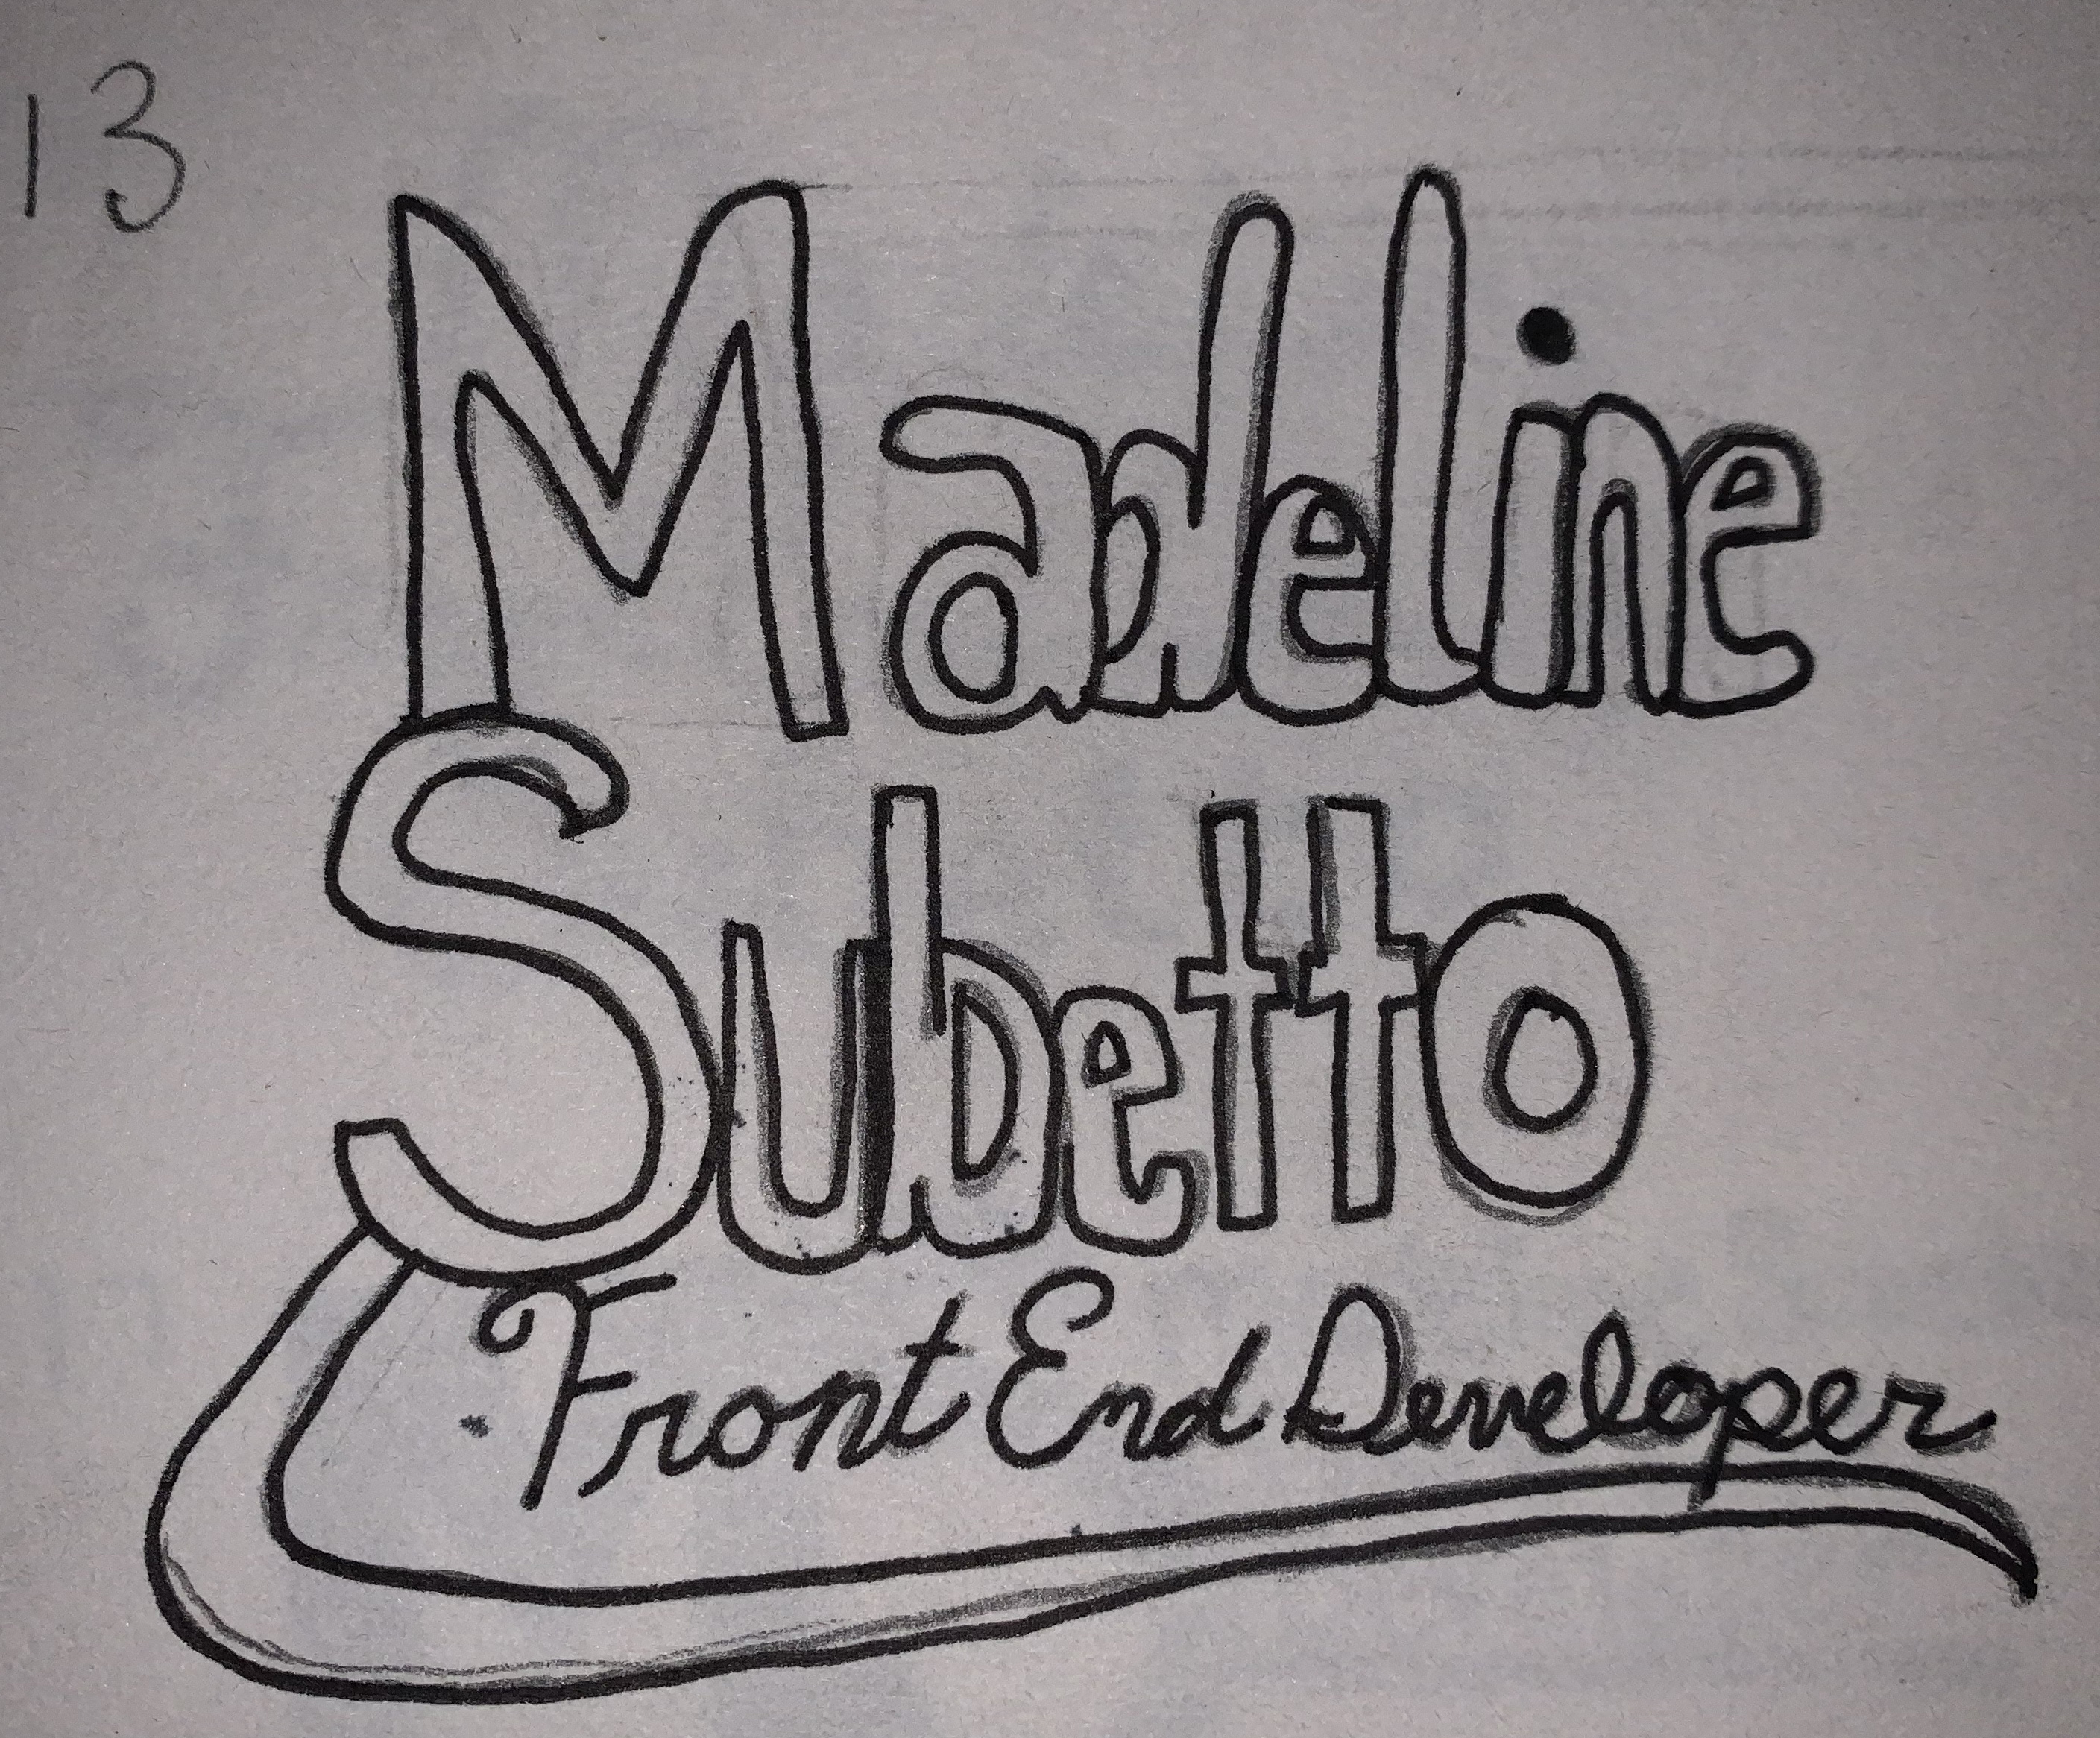 13
Madeline
Subetto
Front End Developer